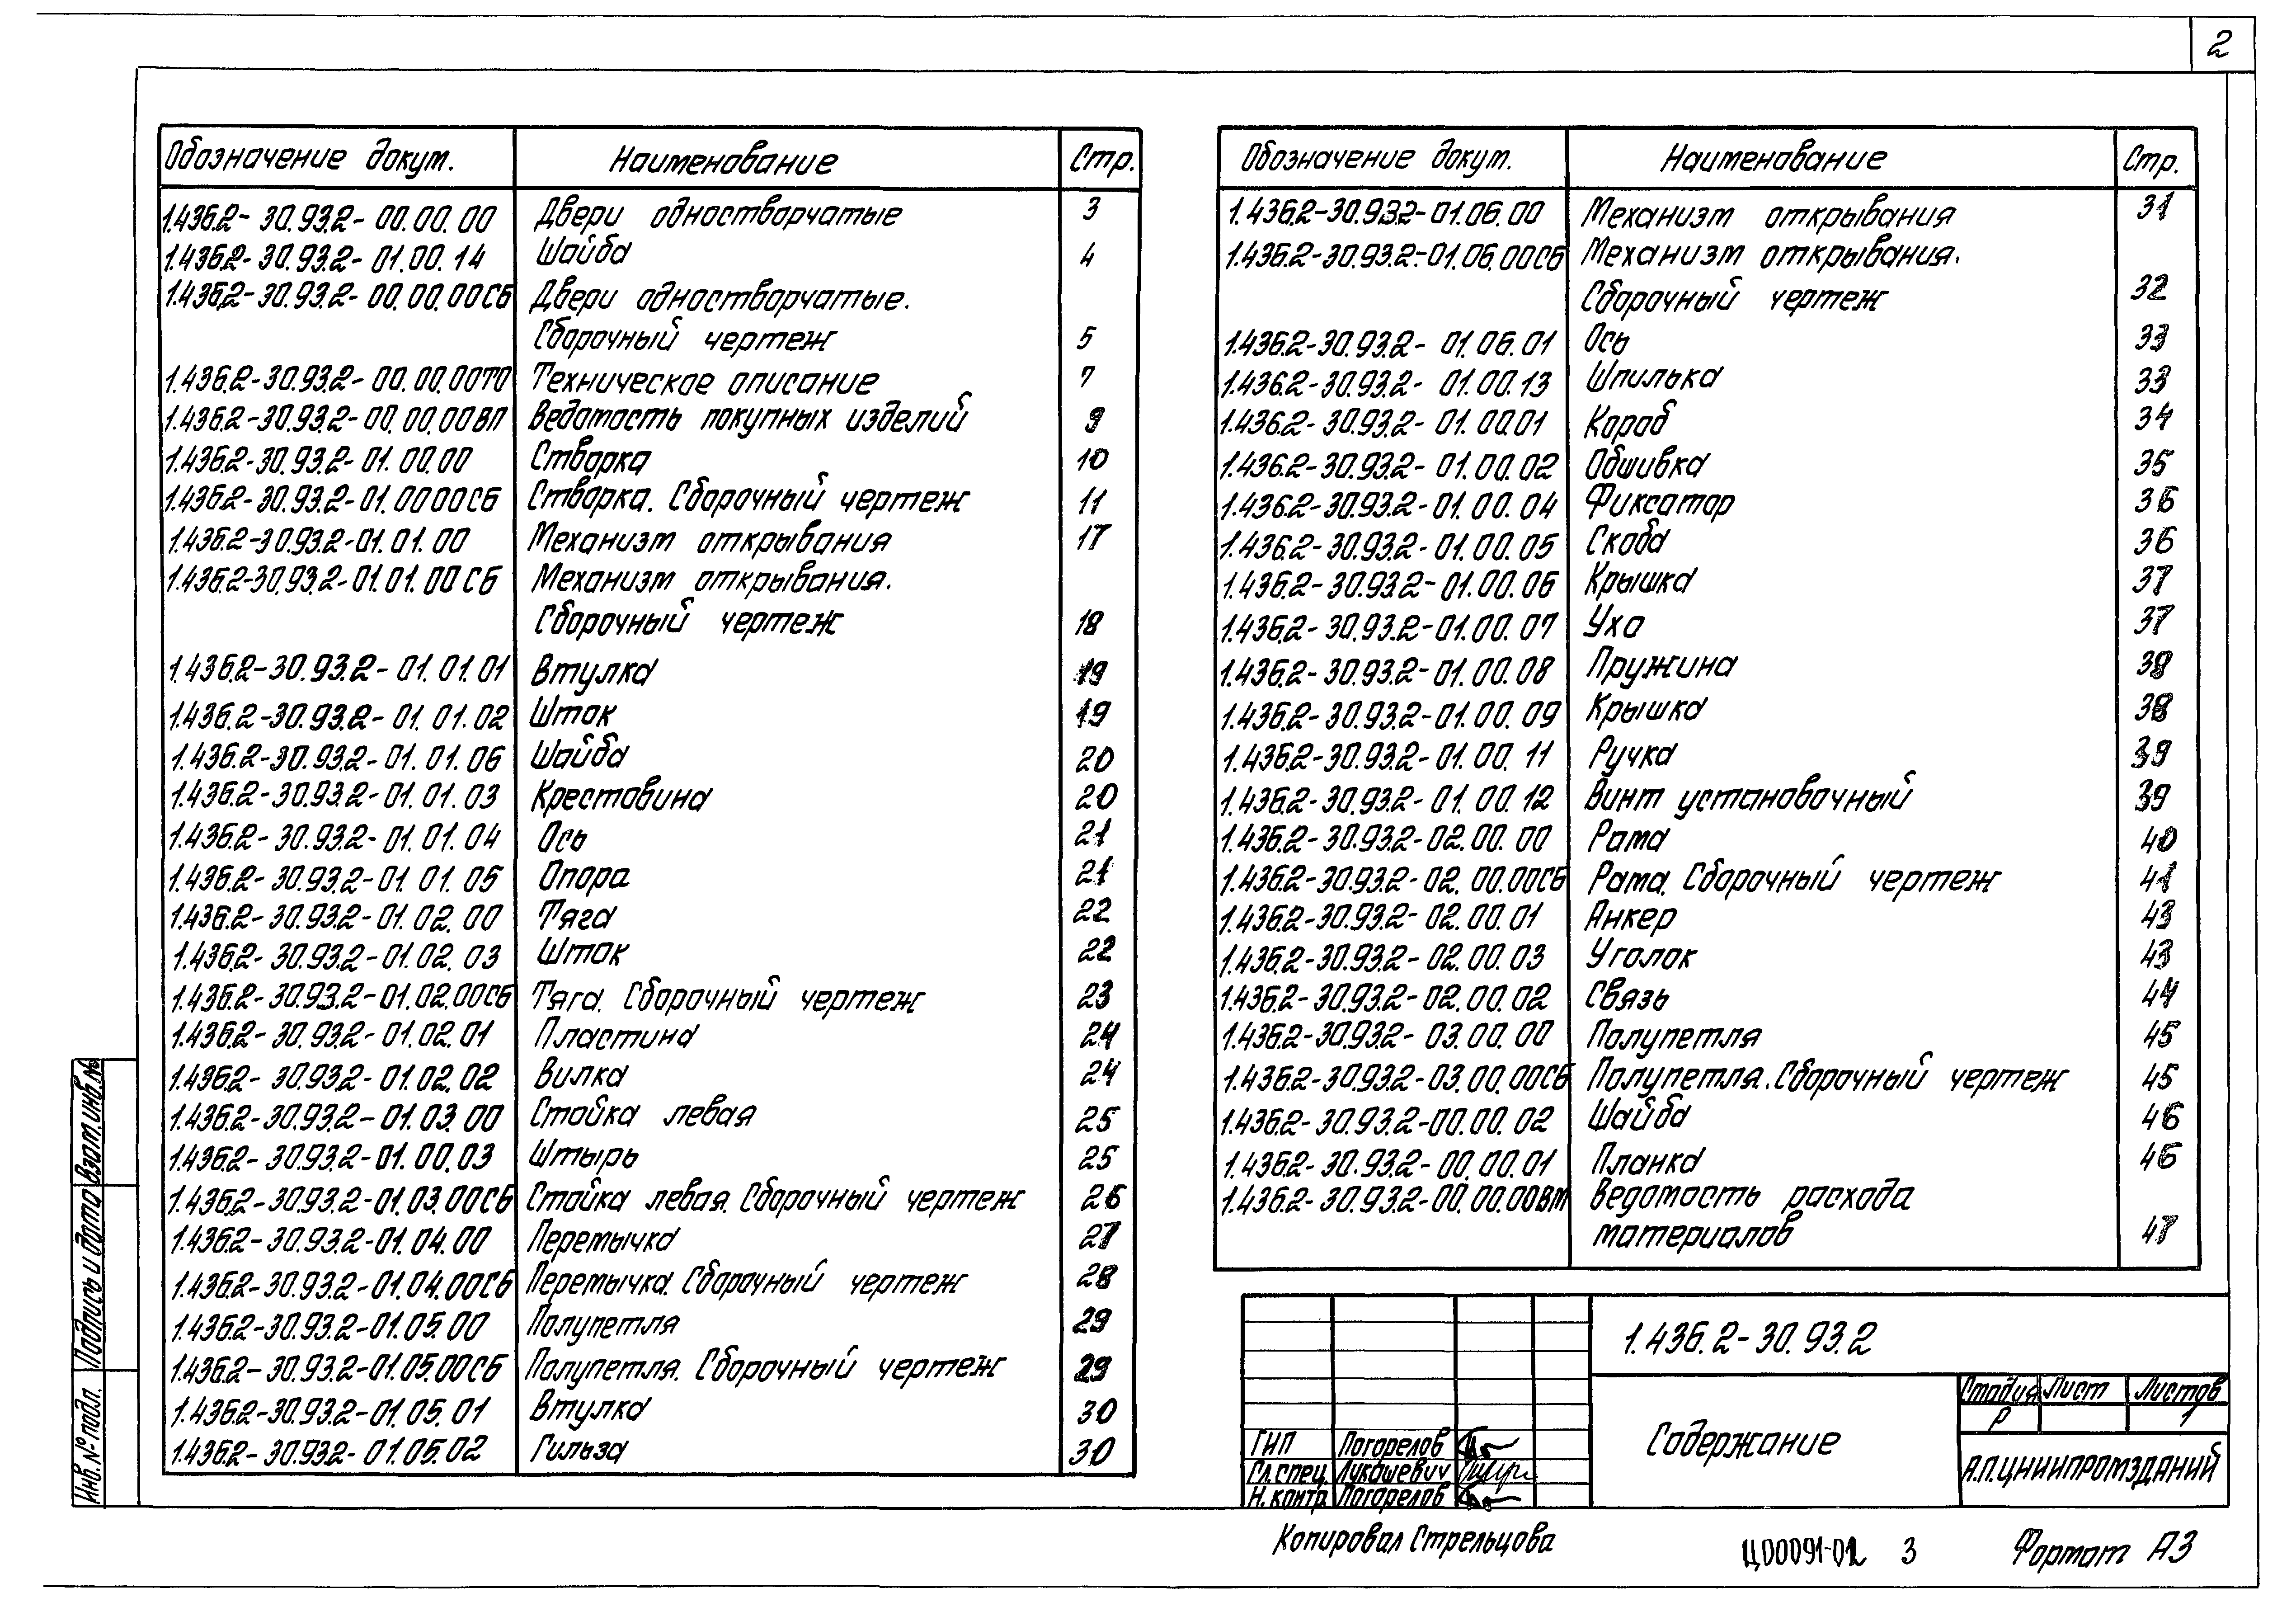 2
Обозначение докум. Наименование Стр.
1.436.2-30.93.2-00.00.00 Двери одностворчатые 3
1.436.2-30.93.2-01.00.14 Шайба 4
1.436.2-30.93.2-00.00.00СБ Двери одностворчатые.
Сборочный чертеж 5
1.436.2-30.93.2-00.00.00ТО Техническое описание 7
1.436.2-30.93.2-00.00.00ВП Ведомость покупных изделий 9
1.436.2-30.93.2-01.00.00 Створка 10
1.436.2-30.93.2-01.00 00СБ Створка. Сборочный чертеж 11
1.436.2-30.93.2-01.01.00 Механизм открывания 17
1.436.2-30.93.2-01.01.00 СБ Механизм открывания.
Сборочный чертеж 18
1.436.2-30.93.2-01.01.01 Втулка 19
1.436.2-30.93.2-01.01.02 Шток 19
1.436.2-30.93.2-01.01.06 Шайба 20
1.436.2-30.93.2-01.01.03 Крестовина 20
1.436.2-30.93.2-01.01.04 Ось 21
1.436.2-30.93.2-01.01.05 Опора 21
1.436.2-30.93.2-01.02.00 Тяга 22
1.436.2-30.93.2-01.02.03 Шток 22
1.436.2-30.93.2-01.02.00СБ Тяга. Сборочный чертеж 23
1.436.2-30.93.2-01.02.01 Пластина 24
1.436.2-30.93.2-01.02.02 Вилка 24
1.436.2-30.93.2-01.03.00 Стойка левая 25
1.436.2-30.93.2-01.00.03 Штырь 25
1.436.2-30.93.2-01.03.00СБ Стойка левая. Сборочный чертеж 26
1.436.2-30.93.2-01.04.00 Перемычка 27
1.436.2-30.93.2-01.04.00СБ Перемычка. Сборочный чертеж 28
1.436.2-30.93.2-01.05.00 Полупетля 29
1.436.2-30.93.2-01.05.00СБ Полупетля. Сборочный чертеж 29
1.436.2-30.93.2-01.05.01 Втулка 30
1.436.2-30.93.2-01.05.02 Гильза 30
Обозначение докум. Наименование Стр.
1.436.2-30.93.2-01.06.00 Механизм открывания 31
1.436.2-30.93.2-01.06.00СБ Механизм открывания.
Сборочный чертеж 32
1.436.2-30.93.2-01.06.01 Ось 33
1.436.2-30.93.2-01.00.13 Шпилька 33
1.436.2-30.93.2-01.00.01 Короб 34
1.436.2-30.93.2-01.00.02 Обшивка 35
1.436.2-30.93.2-01.00.04 Фиксатор 36
1.436.2-30.93.2-01.00.05 Скоба 36
1.436.2-30.93.2-01.00.06 Крышка 37
1.436.2-30.93.2-01.00.07 Ухо 37
1.436.2-30.93.2-01.00.08 Пружина 38
1.436.2-30.93.2-01.00.09 Крышка 38
1.436.2-30.93.2-01.00.11 Ручка 39
1.436.2-30.93.2-01.00.12 Винт установочный 39
1.436.2-30.93.2-02.00.00 Рама 40
1.436.2-30.93.2-02.00.00СБ Рама. Сборочный чертеж 41
1.436.2-30.93.2-02.00.01 Анкер 43
1.436.2-30.93.2-02.00.03 Уголок 43
1.436.2-30.93.2-02.00.02 Связь 44
1.436.2-30.93.2-03.00.00 Полупетля 45
1.436.2-30.93.2-03.00.00СБ Полупетля. Сборочный чертеж 45
1.436.2-30.93.2-00.00.02 Шайба 46
1.436.2-30.93.2-00.00.01 Планка 46
1.436.2-30.93.2-00.00.00ВМ Ведомость расхода
материалов 47
1.436.2-30.93.2
Содержание
Стадия Лист Листов
Р 1
А.П.ЦНИИПРОМЗДАНИЙ
ГИП Погорелов
Гл.спец. Лукашевич
Н.контр. Погорелов
Инв.№ подл. Подпись и дата Взам.инв.№
Копировал Стрельцова
Ц00091-02 3
Формат А3